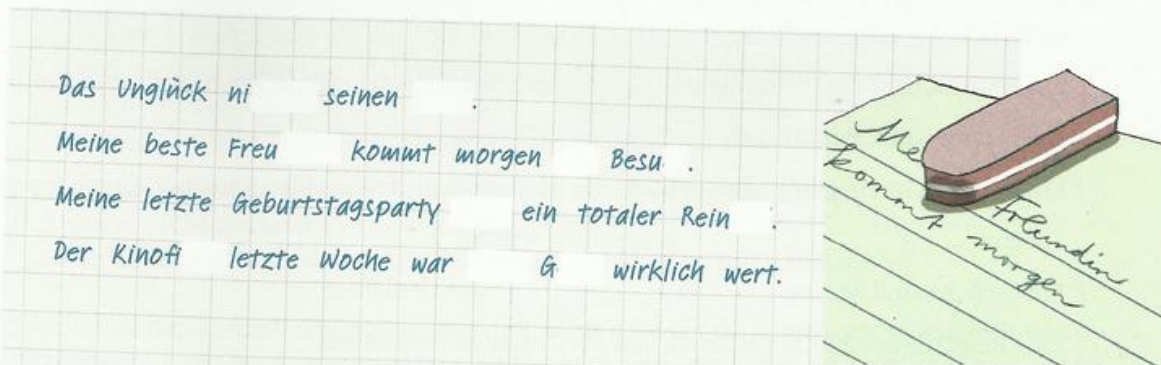 Das Unglück ni seinen .
Meine beste Freu kommt morgen Besu .
Meine letzte Geburtstagsparty ein totaler Rein .
Der Kinofi letzte Woche war G wirklich wert.
Me
Freundin
kommt morgen